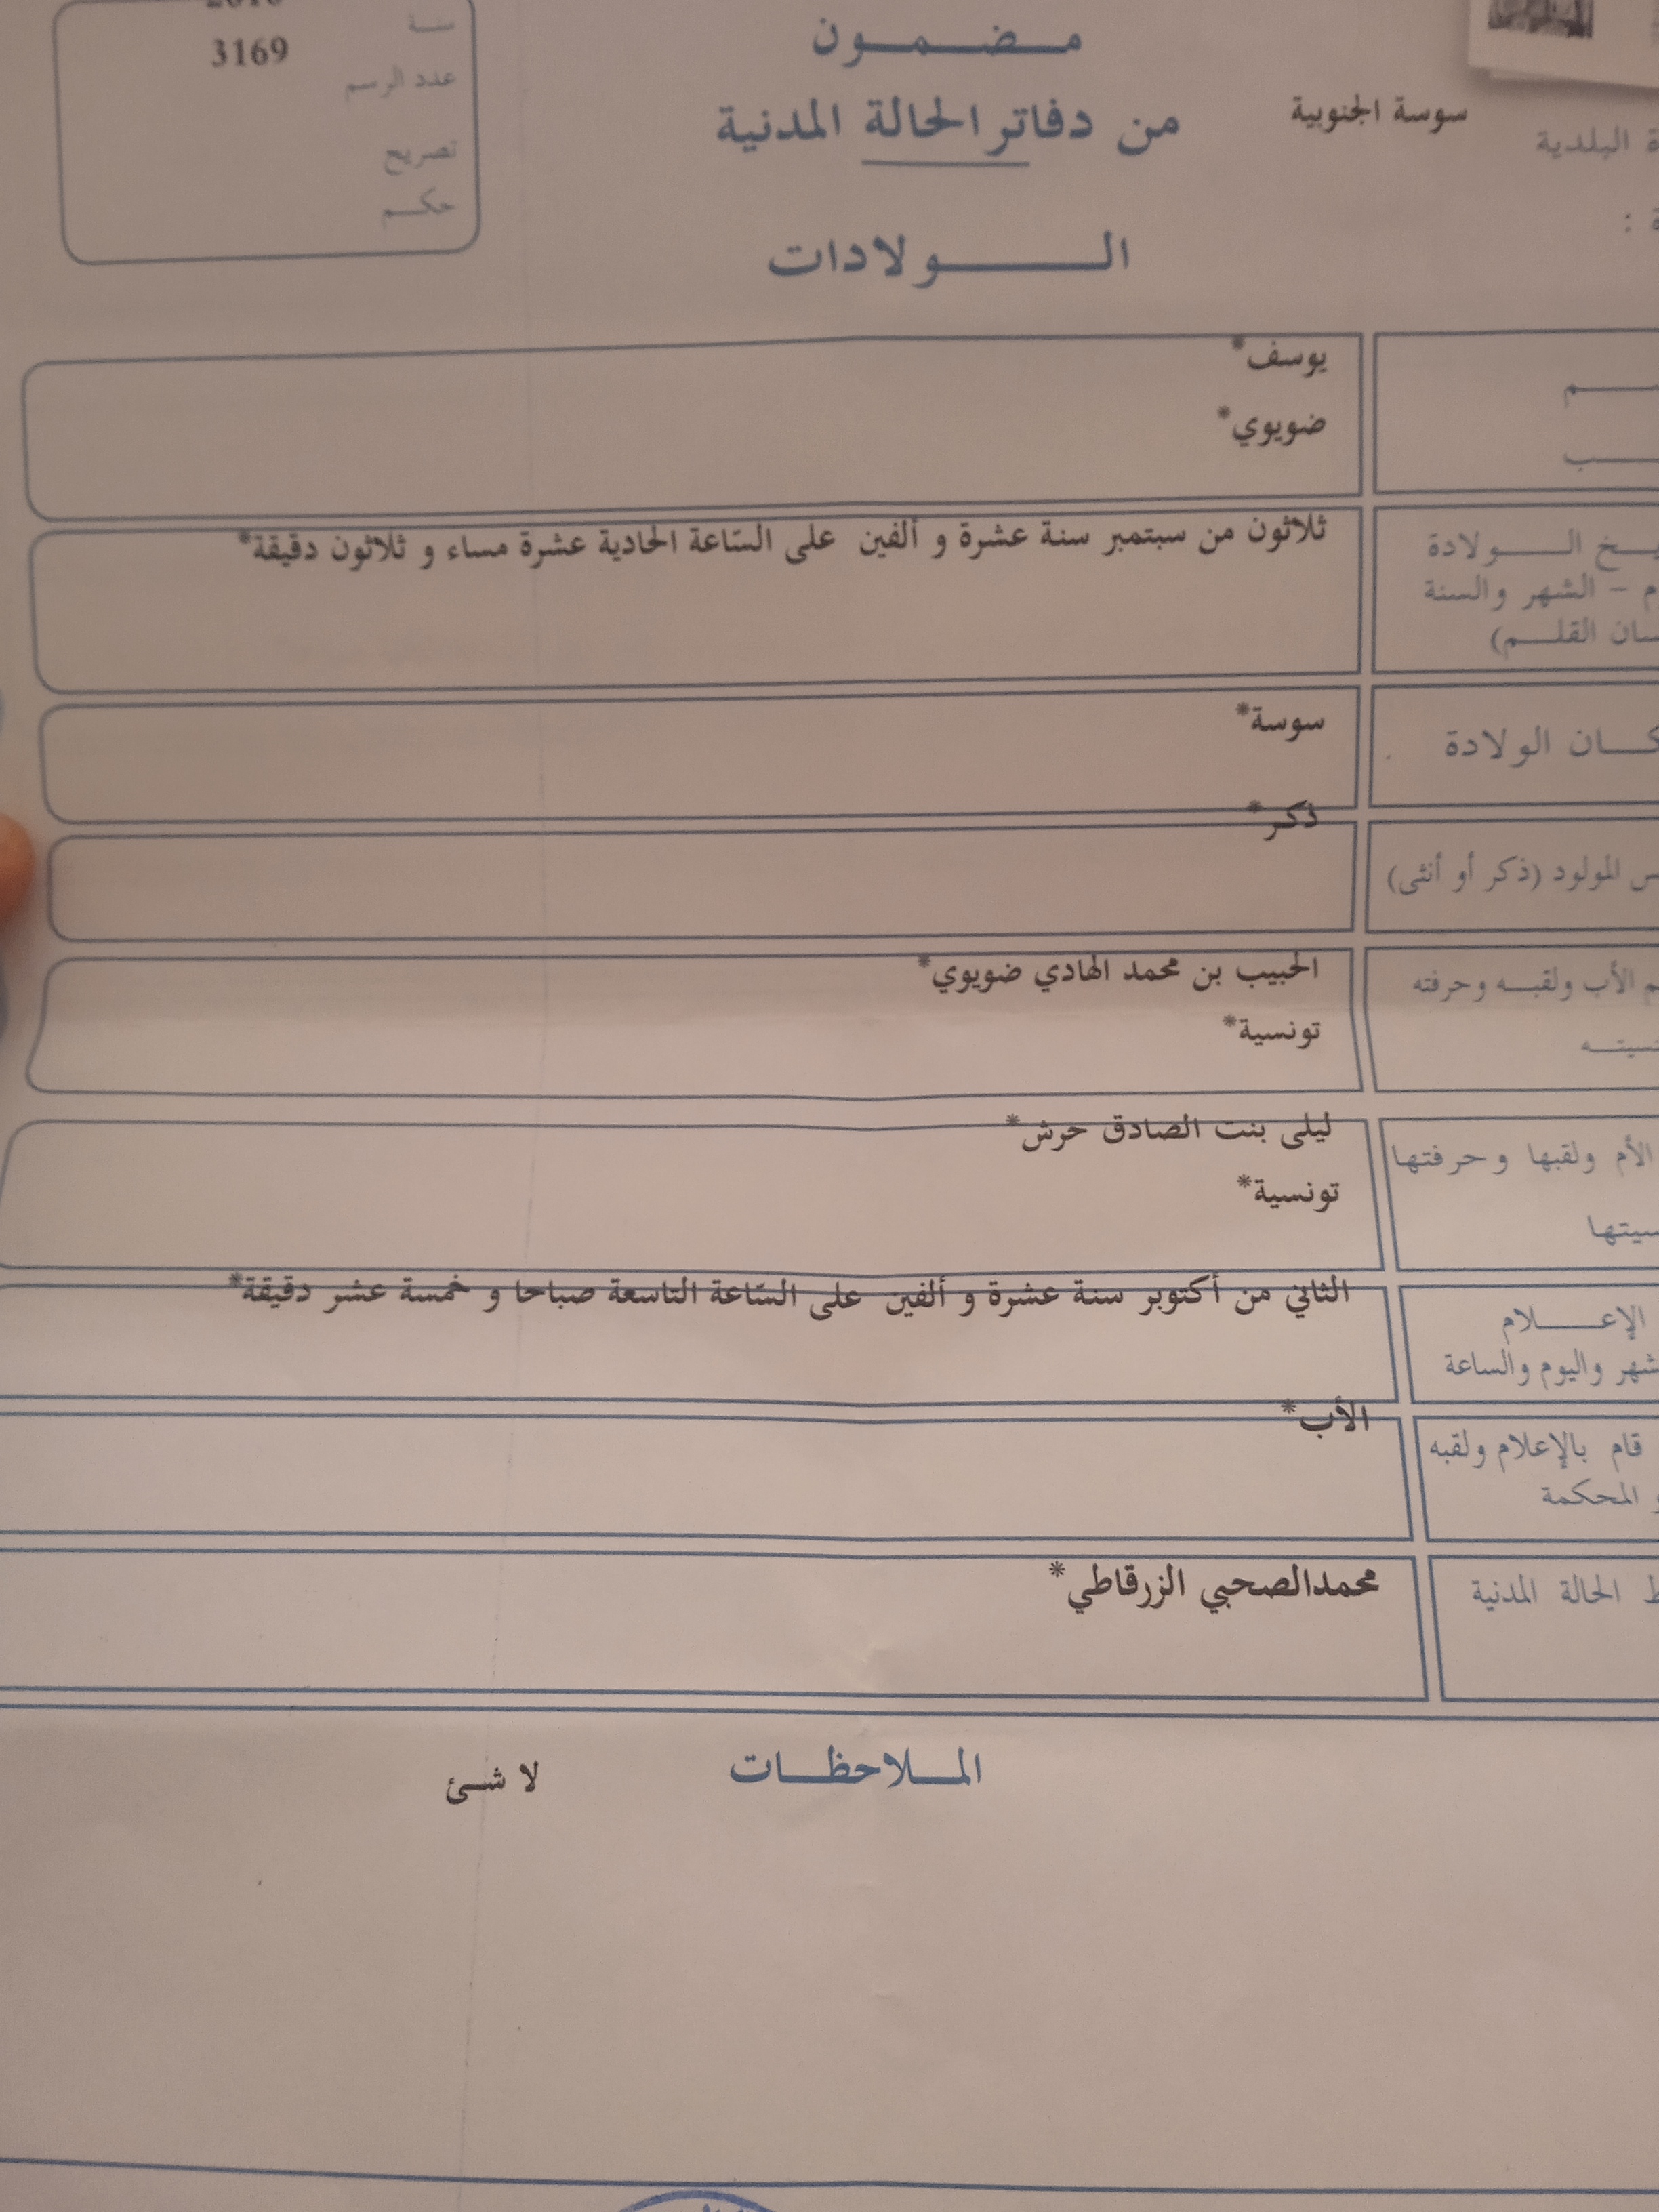 سنة
3169
عدد الرسم
تصريح
حكم
مضمون
من دفاتر الحالة المدنية
الولادات
البلدية
سوسة الجنوبية
يوسف*
ضويوي*
الولادة
الشهر والسنة
القلم)
ثلاثون من سبتمبر سنة عشرة و ألفين على السّاعة الحادية عشرة مساء و ثلاثون دقيقة*
الولادة
سوسة*
المولود (ذكر أو أنثى)
ذكر*
الأب ولقبه وحرفته
الحبيب بن محمد الهادي ضويوي*
تونسية*
الأم ولقبها وحرفتها
ليلى بنت الصادق حرش*
تونسية*
الإعلام
واليوم والساعة
الثاني من أكتوبر سنة عشرة و ألفين على السّاعة التاسعة صباحا و خمسة عشر دقيقة*
قام بالإعلام ولقبه
المحكمة
الأب*
الحالة المدنية
محمدالصحبي الزرقاطي*
الملاحظات
لا شئ